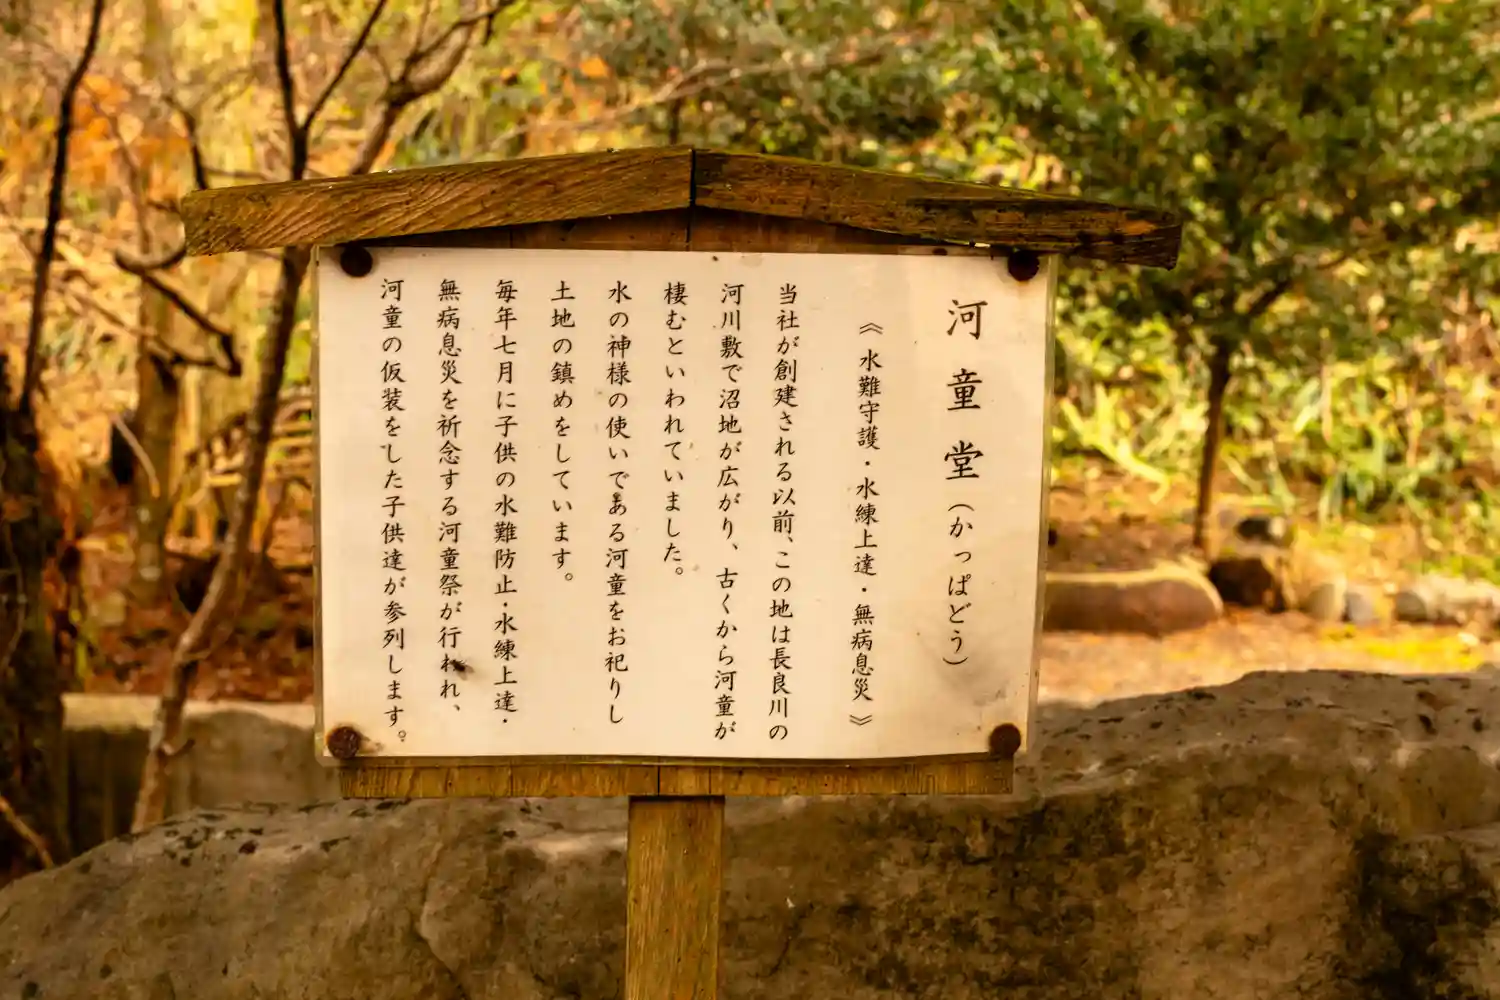 河童堂（かっぱどう）
《水難守護・水練上達・無病息災》
当社が創建される以前、この地は長良川の
河川敷で沼地が広がり、古くから河童が
棲むといわれていました。
水の神様の使いである河童をお祀りし
土地の鎮めをしています。
毎年七月に子供の水難防止・水練上達・
無病息災を祈念する河童祭が行われ、
河童の仮装をした子供達が参列します。